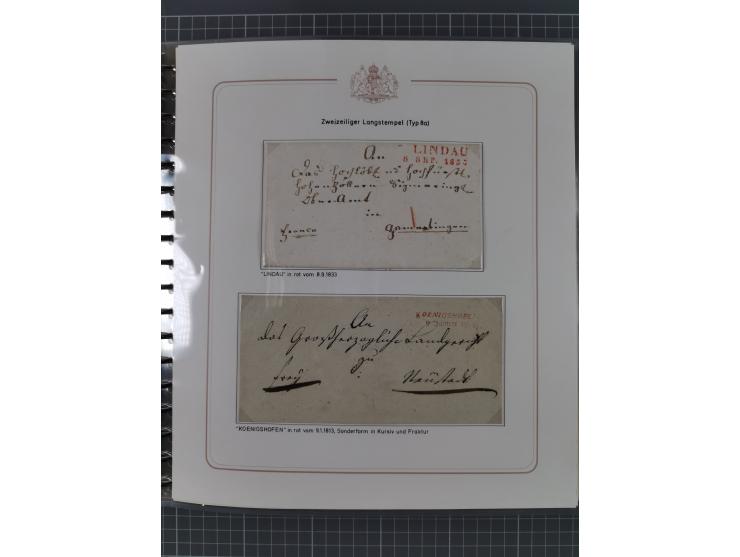 Zweizeiliger Langstempel (Typ 8a)
LINDAU
8 SEP. 1833
An
Das Hochlöbl
Hohenzollern Sigmaring.
Ober Amt
in
franco
Gamertingen
"LINDAU" in rot vom 8.9.1833
KOENIGSHOFEN
An
das Großherzogliche Landgericht
zu
frey
Neustadt
"KOENIGSHOFEN" in rot vom 9.1.1813, Sonderform in Kursiv und Fraktur